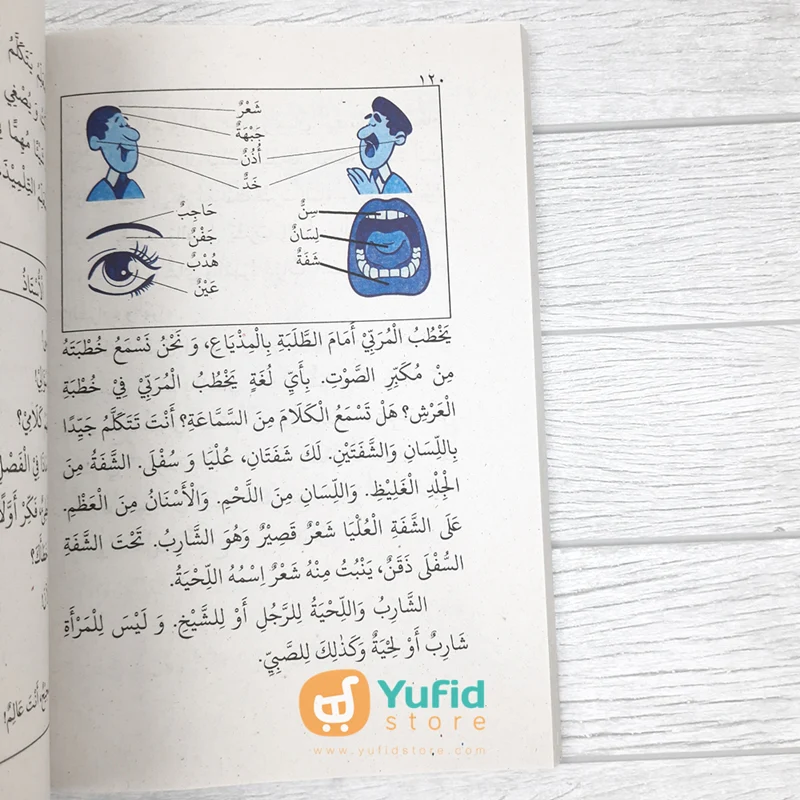 ١٢٠
شَعْرٌ
جَبْهَةٌ
أُذُنٌ
خَدٌّ
حَاجِبٌ
جَفْنٌ
هُدْبٌ
عَيْنٌ
سِنٌّ
لِسَانٌ
شَفَةٌ
يَخْطُبُ الْمُرَبِّيْ أَمَامَ الطَّلَبَةِ بِالْمِذْيَاعِ، وَ نَحْنُ نَسْمَعُ خُطْبَتَهُ
مِنْ مُكَبِّرِ الصَّوْتِ. بِأَيِّ لُغَةٍ يَخْطُبُ الْمُرَبِّيْ فِيْ خُطْبَةِ
الْعَرْشِ؟ هَلْ تَسْمَعُ الْكَلَامَ مِنَ السَّمَّاعَةِ؟ أَنْتَ تَتَكَلَّمُ جَيِّدًا
بِاللِّسَانِ وَالشَّفَتَيْنِ. لَكَ شَفَتَانِ، عُلْيَا وَ سُفْلَى. الشَّفَةُ مِنَ
الْجِلْدِ الْغَلِيْظِ. وَاللِّسَانِ مِنَ اللَّحْمِ. وَالْأَسْنَانُ مِنَ الْعَظْمِ.
عَلَى الشَّفَةِ الْعُلْيَا شَعْرٌ قَصِيْرٌ وَهُوَ الشَّارِبُ. تَحْتَ الشَّفَةِ
السُّفْلَى ذَقَنٌ، يَنْبُتُ مِنْهُ شَعْرٌ اِسْمُهُ اللِّحْيَةُ.
الشَّارِبُ وَاللِّحْيَةُ لِلرَّجُلِ أَوْ لِلشَّيْخِ. وَ لَيْسَ لِلْمَرْأَةِ
شَارِبٌ أَوْ لِحْيَةٌ وَكَذٰلِكَ لِلصَّبِيِّ.
Yufid
store
www.yufidstore.com